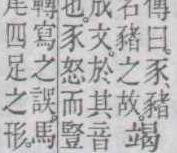 傳曰。豕、豬
名豬之故。竭
成文。於其音
也。豕怒而豎
轉寫之誤。馬
尾四足之形。